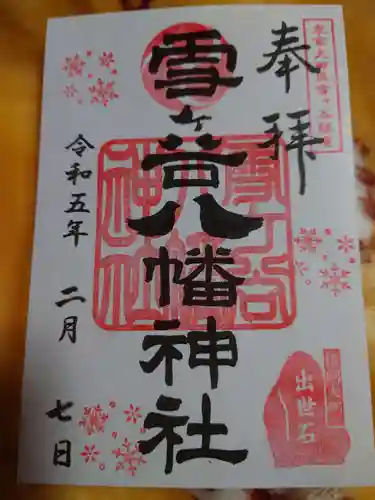 奉拝
雪ヶ谷八幡神社
雪ヶ谷
八幡
神社
令和五年 二月 七日
出世石